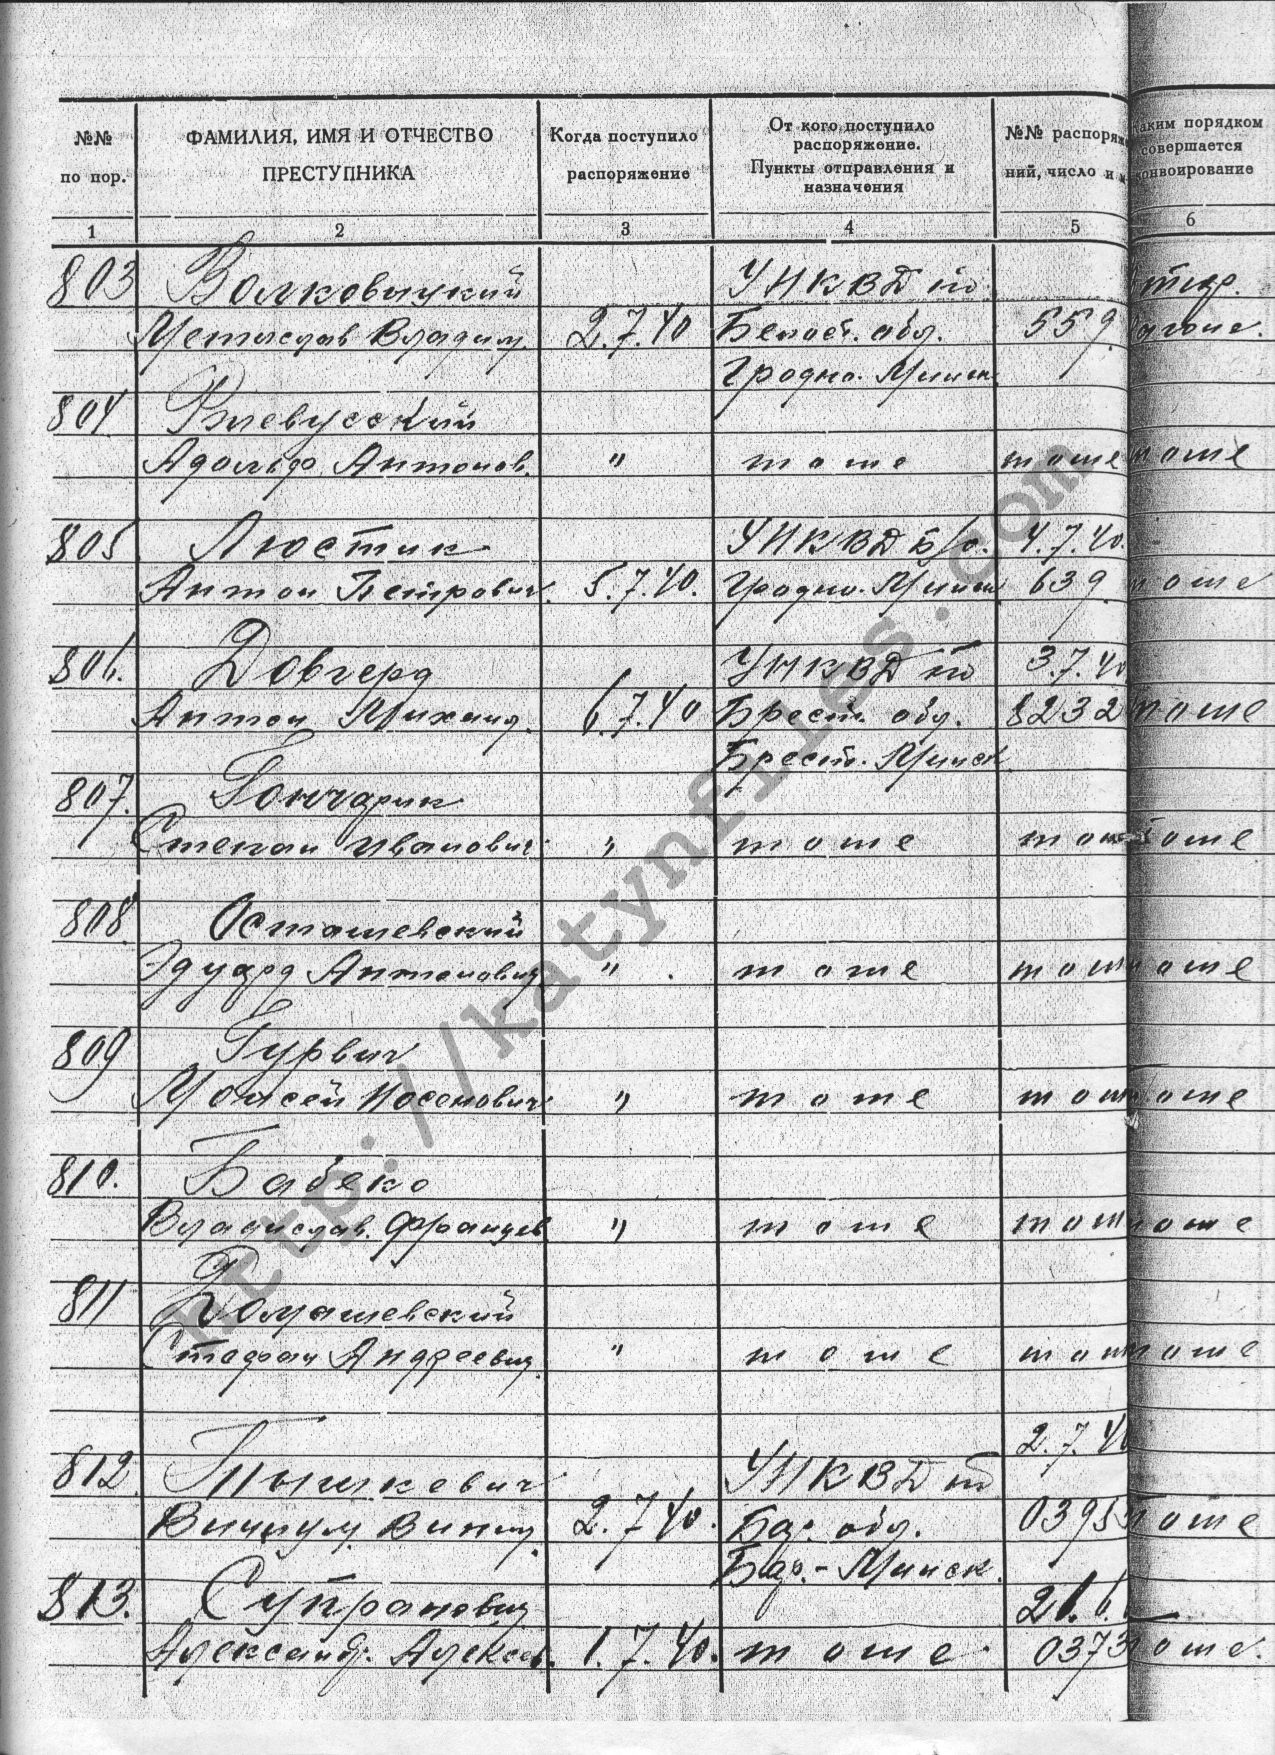 №№ по пор.
ФАМИЛИЯ, ИМЯ И ОТЧЕСТВО ПРЕСТУПНИКА
Когда поступило распоряжение
От кого поступило распоряжение. Пункты отправления и назначения
№№ распоряже
ний, число и м
аким порядком совершается конвоирование
1 2 3 4 5 6
803 Волковыцкий УНКВД по
Мстислав Владим. 2.7.40 Белост. обл. 559
Гродно. Минск
804 Ржевусский
Адольф Антонов. " тоже тоже тоже
805 Люстик УНКВД Б/о. 4.7.40.
Антон Петрович. 5.7.40. Гродно. Минск 639 тоже
806. Довгерд УНКВД по 3.7.40
Антон Михаил. 6.7.40 Брест. обл. 8232 тоже
Брест. Минск
807. Гончарик
Степан Иванович " тоже тоже тоже
808 Осташевский
Эдуард Антонович " тоже тоже
809 Гурвич
Моисей Носонович " тоже тоже
810. Бабеко
Владислав. Францев. " тоже тоже
811 Ромашевский
Стефан Андреевич. " тоже тоже
2.7.40
812 Тышкевич УНКВД по
2.7.40. Бар. обл. 0395 тоже
Бар.-Минск.
813. Супранович 21.6.
Александр. Алексеев. 1.7.40. тоже 0373 тоже.
http://katynfiles.com